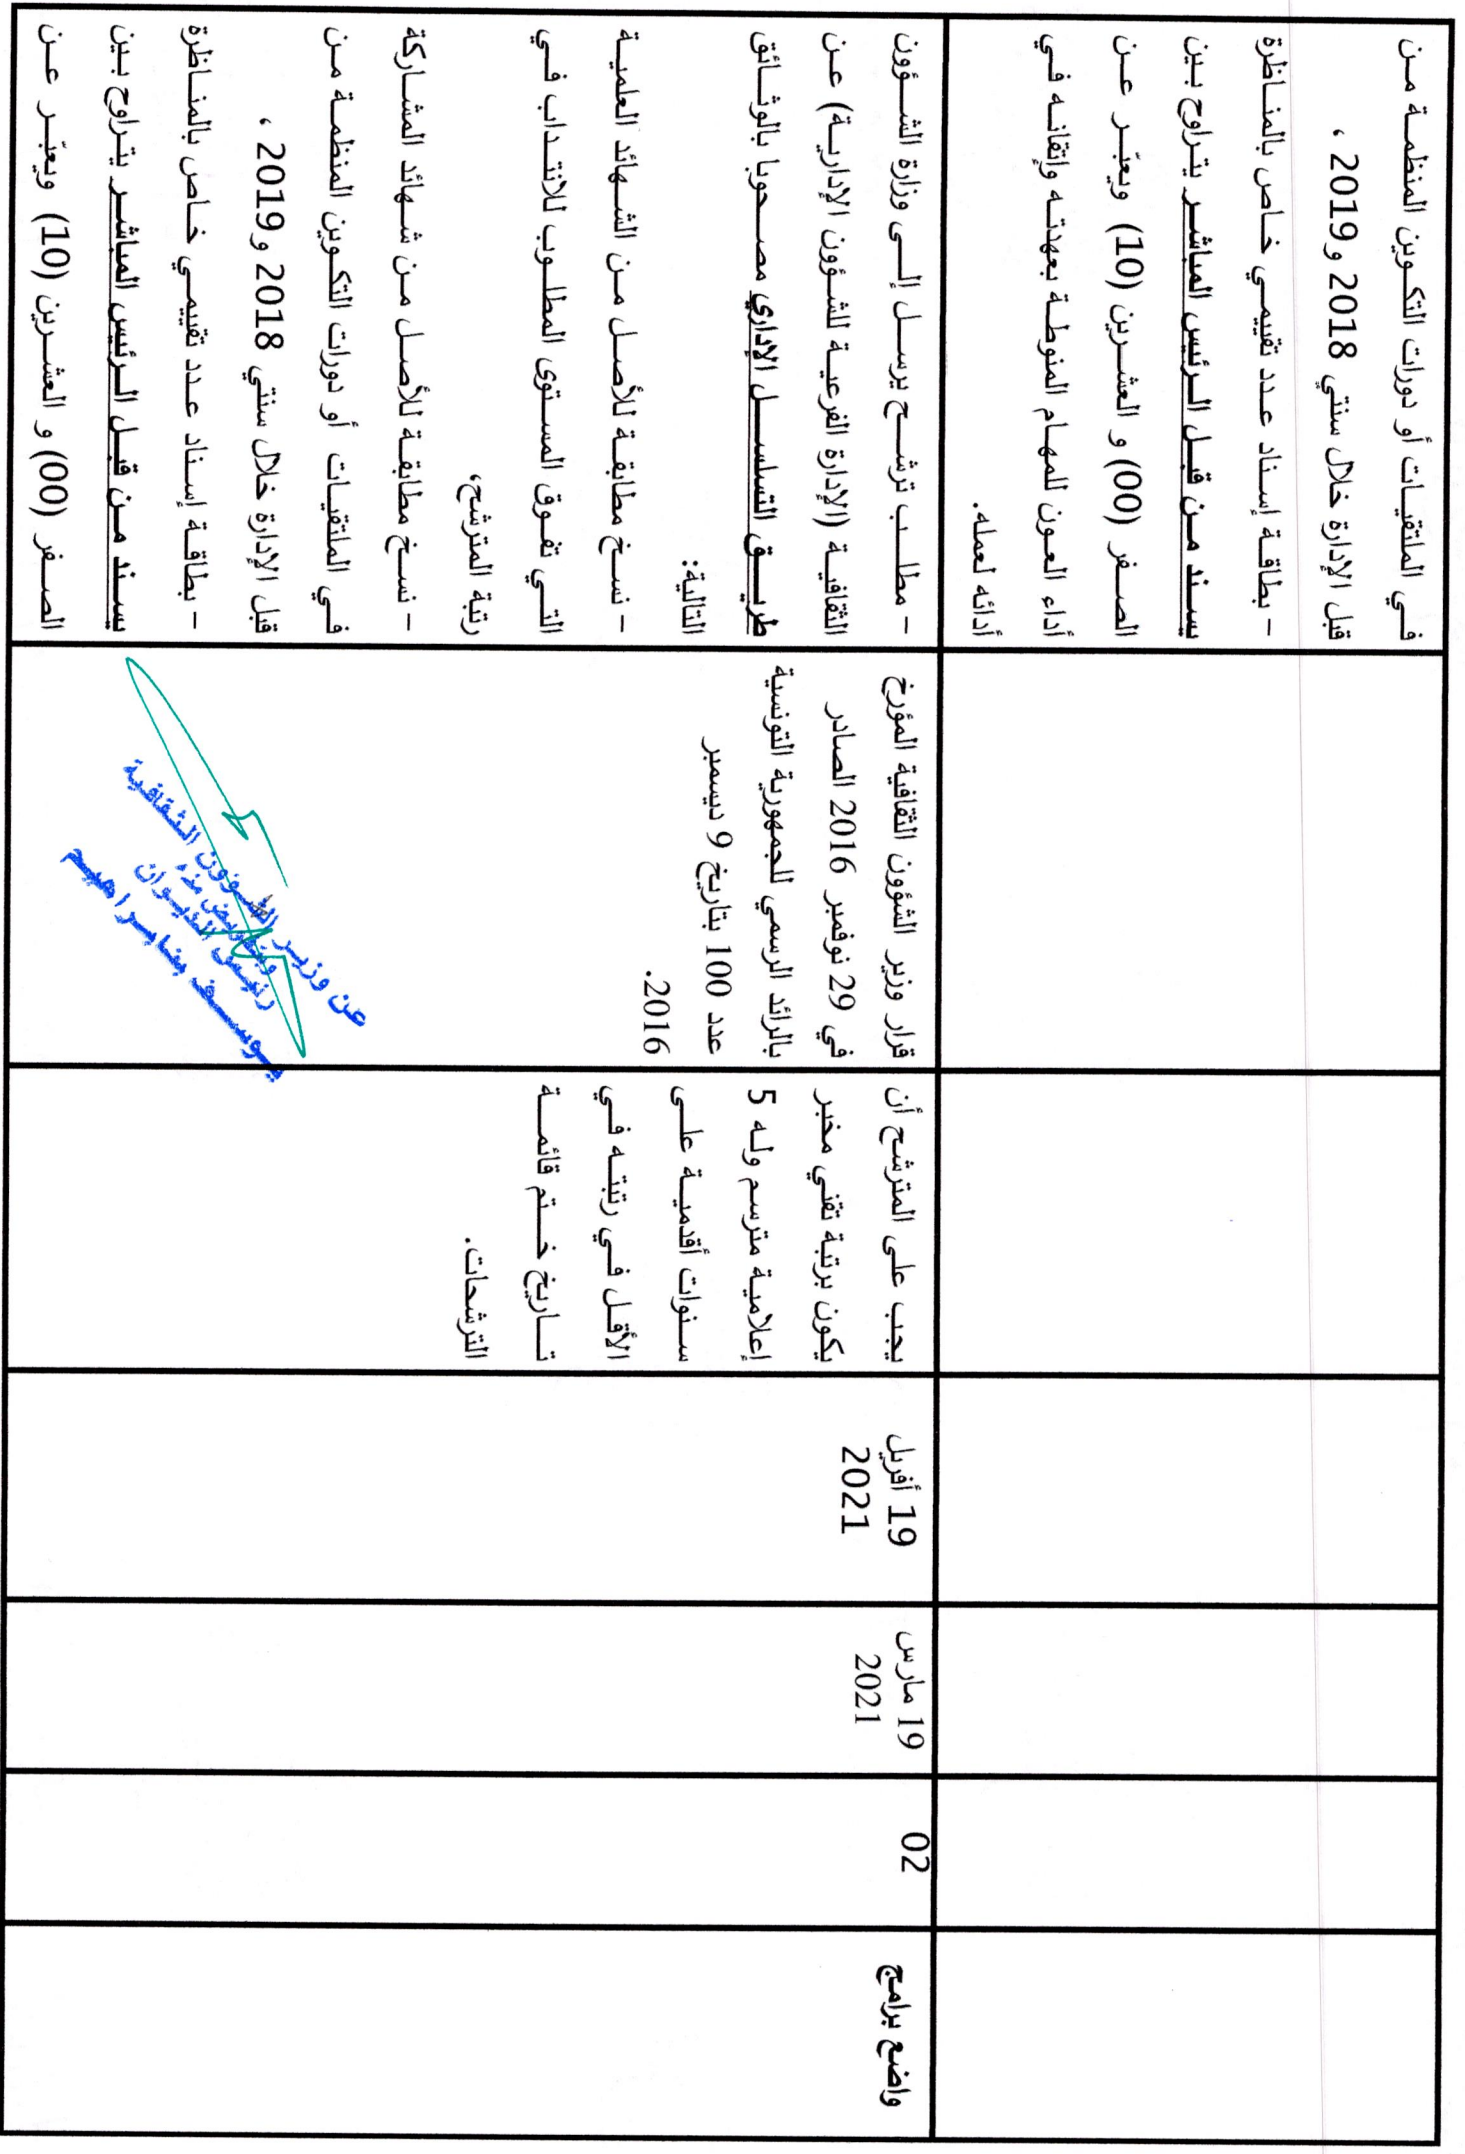 في الملتقيات أو دورات التكوين المنظمة من
قبل الإدارة خلال سنتي 2018 و2019 ،
- بطاقة إسناد عدد تقييمي خاص بالمناظرة
يسند من قبل الرئيس المباشر يتراوح بين
الصفر (00) و العشرين (10) ويعبّر عن
أداء العون للمهام المنوطة بعهدته وإتقانه في
أدائه لعمله.
واضع برامج
02
19 مارس
2021
19 أفريل
2021
يجب على المترشح أن
يكون برتبة تقني مخبر
إعلامية مترسم وله 5
سنوات أقدمية على
الأقل في رتبته في
تاريخ ختم قائمة
الترشحات.
قرار وزير الشؤون الثقافية المؤرخ
في 29 نوفمبر 2016 الصادر
بالرائد الرسمي للجمهورية التونسية
عدد 100 بتاريخ 9 ديسمبر
2016.
- مطلب ترشح يرسل إلى وزارة الشؤون
الثقافية (الإدارة الفرعية للشؤون الإدارية) عن
طريق التسلسل الإداري مصحوبا بالوثائق
التالية:
- نسخ مطابقة للأصل من الشهائد العلمية
التي تفوق المستوى المطلوب للانتداب في
رتبة المترشح،
- نسخ مطابقة للأصل من شهائد المشاركة
في الملتقيات أو دورات التكوين المنظمة من
قبل الإدارة خلال سنتي 2018 و2019 ،
- بطاقة إسناد عدد تقييمي خاص بالمناظرة
يسند من قبل الرئيس المباشر يتراوح بين
الصفر (00) و العشرين (10) ويعبّر عن
عن وزير الشؤون الثقافية
وبتفويض منه
رئيس الديوان
يوسف بن ابراهيم